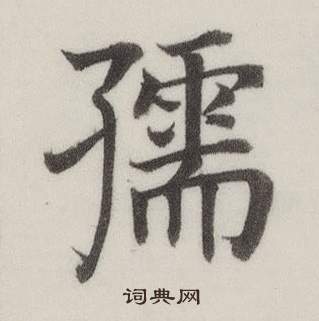 孺
词典网